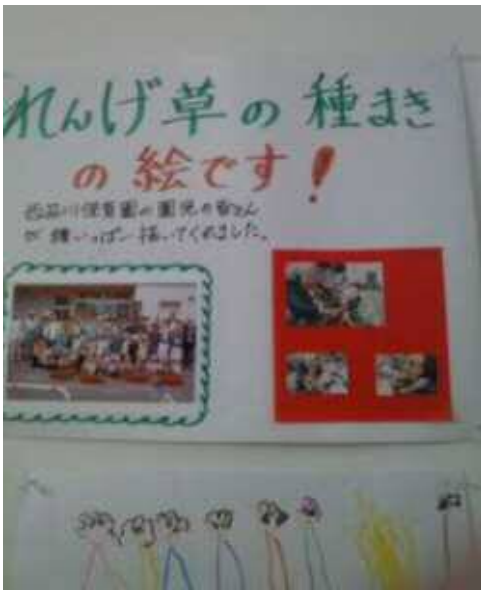 れんげ草の種まき
の絵です!
保育園の園児の皆さん
が精いっぱい描いてくれました。